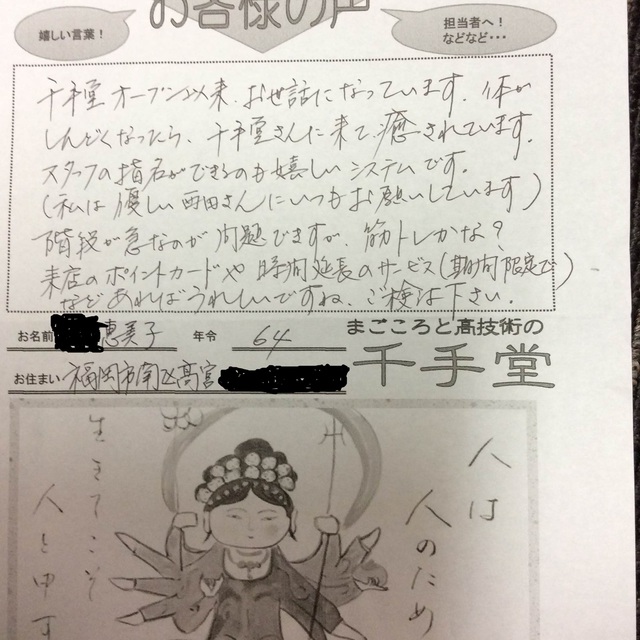 お客様の声
嬉しい言葉！
担当者へ！
などなど・・・
千手堂オープン以来、お世話になっています。体が
しんどくなったら、千手堂さんに来て、癒されています。
スタッフの指名ができるのも嬉しいシステムです。
(私は優しい西田さんにいつもお願いしています)
階段が急なのが問題ですが、筋トレかな？
来店のポイントカードや時間延長のサービス(期間限定で)
などあればうれしいですね、ご検討下さい。
お名前 恵美子 年令 64
お住まい 福岡市南区高宮
まごころと高技術の
千手堂
人は
人のため
生きてこそ
人と申す